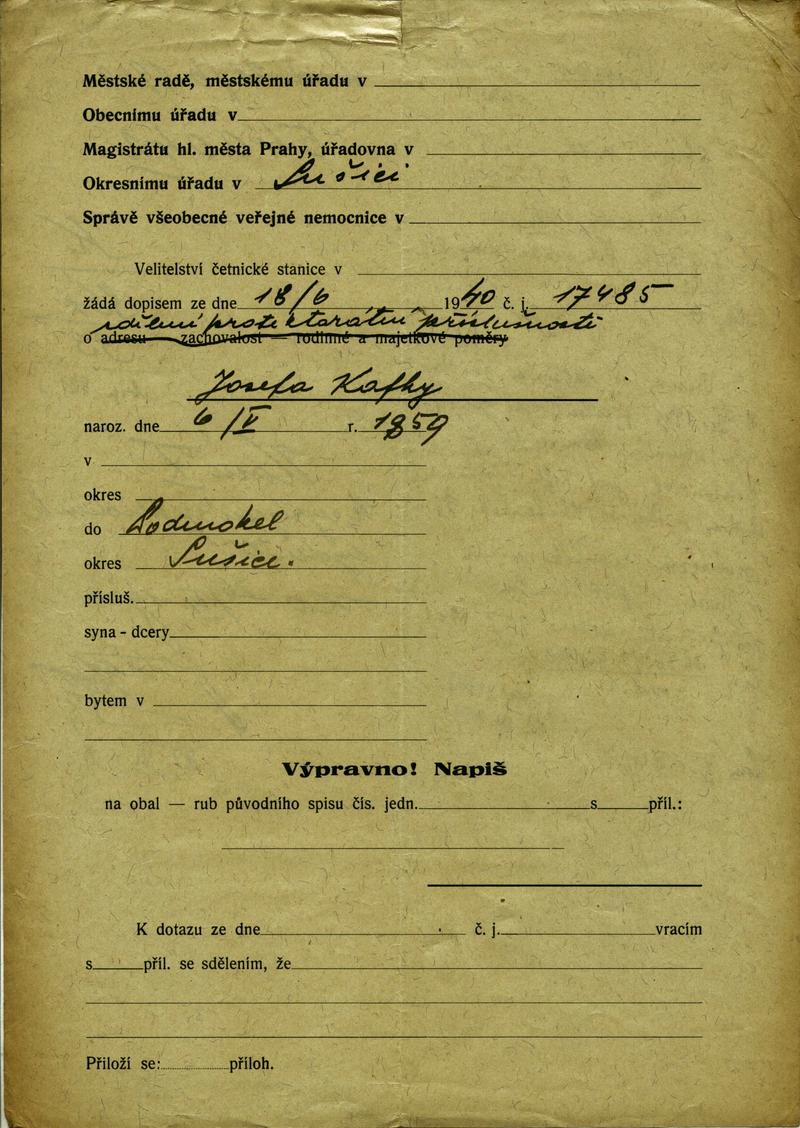 Městské radě, městskému úřadu v
Obecnímu úřadu v
Magistrátu hl. města Prahy, úřadovna v
Okresnímu úřadu v Sušici
Správě všeobecné veřejné nemocnice v
Velitelství četnické stanice v
žádá dopisem ze dne 18/6 1940 č. j. 17485
proti
o adresu — zachovalost — rodinné a majetkové poměry
Josefa Kafky
naroz. dne 6/V r. 1859
v
okres
do Podmokel
okres Sušice.
přísluš.
syna - dcery
bytem v
Výpravno! Napiš
na obal — rub původního spisu čís. jedn. s příl.:
K dotazu ze dne č. j. vracím
s příl. se sdělením, že
Přiloží se: příloh.